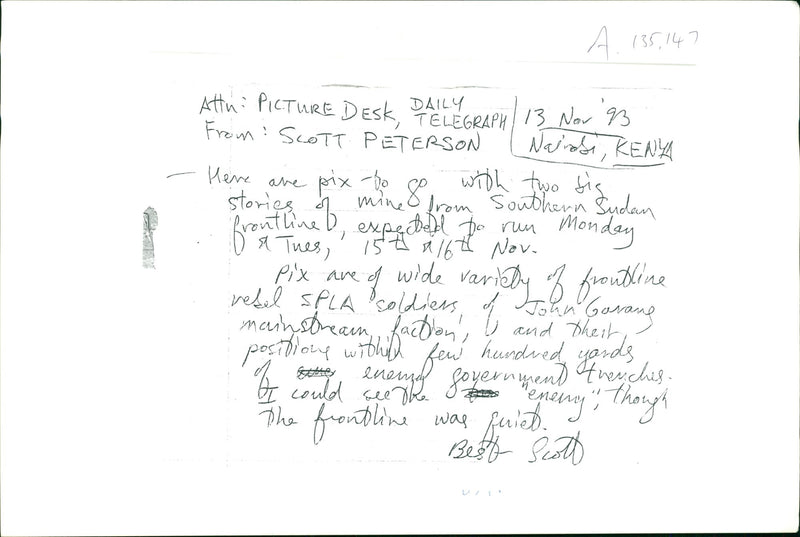 A. 135,147
Attn: PICTURE DESK, DAILY TELEGRAPH
From: SCOTT PETERSON
13 Nov '93
Nairobi, KENYA
— Here are pix to go with two big
stories of mine from Southern Sudan
frontline, expected to run Monday
& Tues, 15th & 16th Nov.
Pix are of wide variety of frontline
rebel SPLA soldiers, of John Garang
'mainstream faction', and their
positions within few hundred yards
of enemy government trenches.
I could see the "enemy", though
the frontline was quiet.
Best Scott